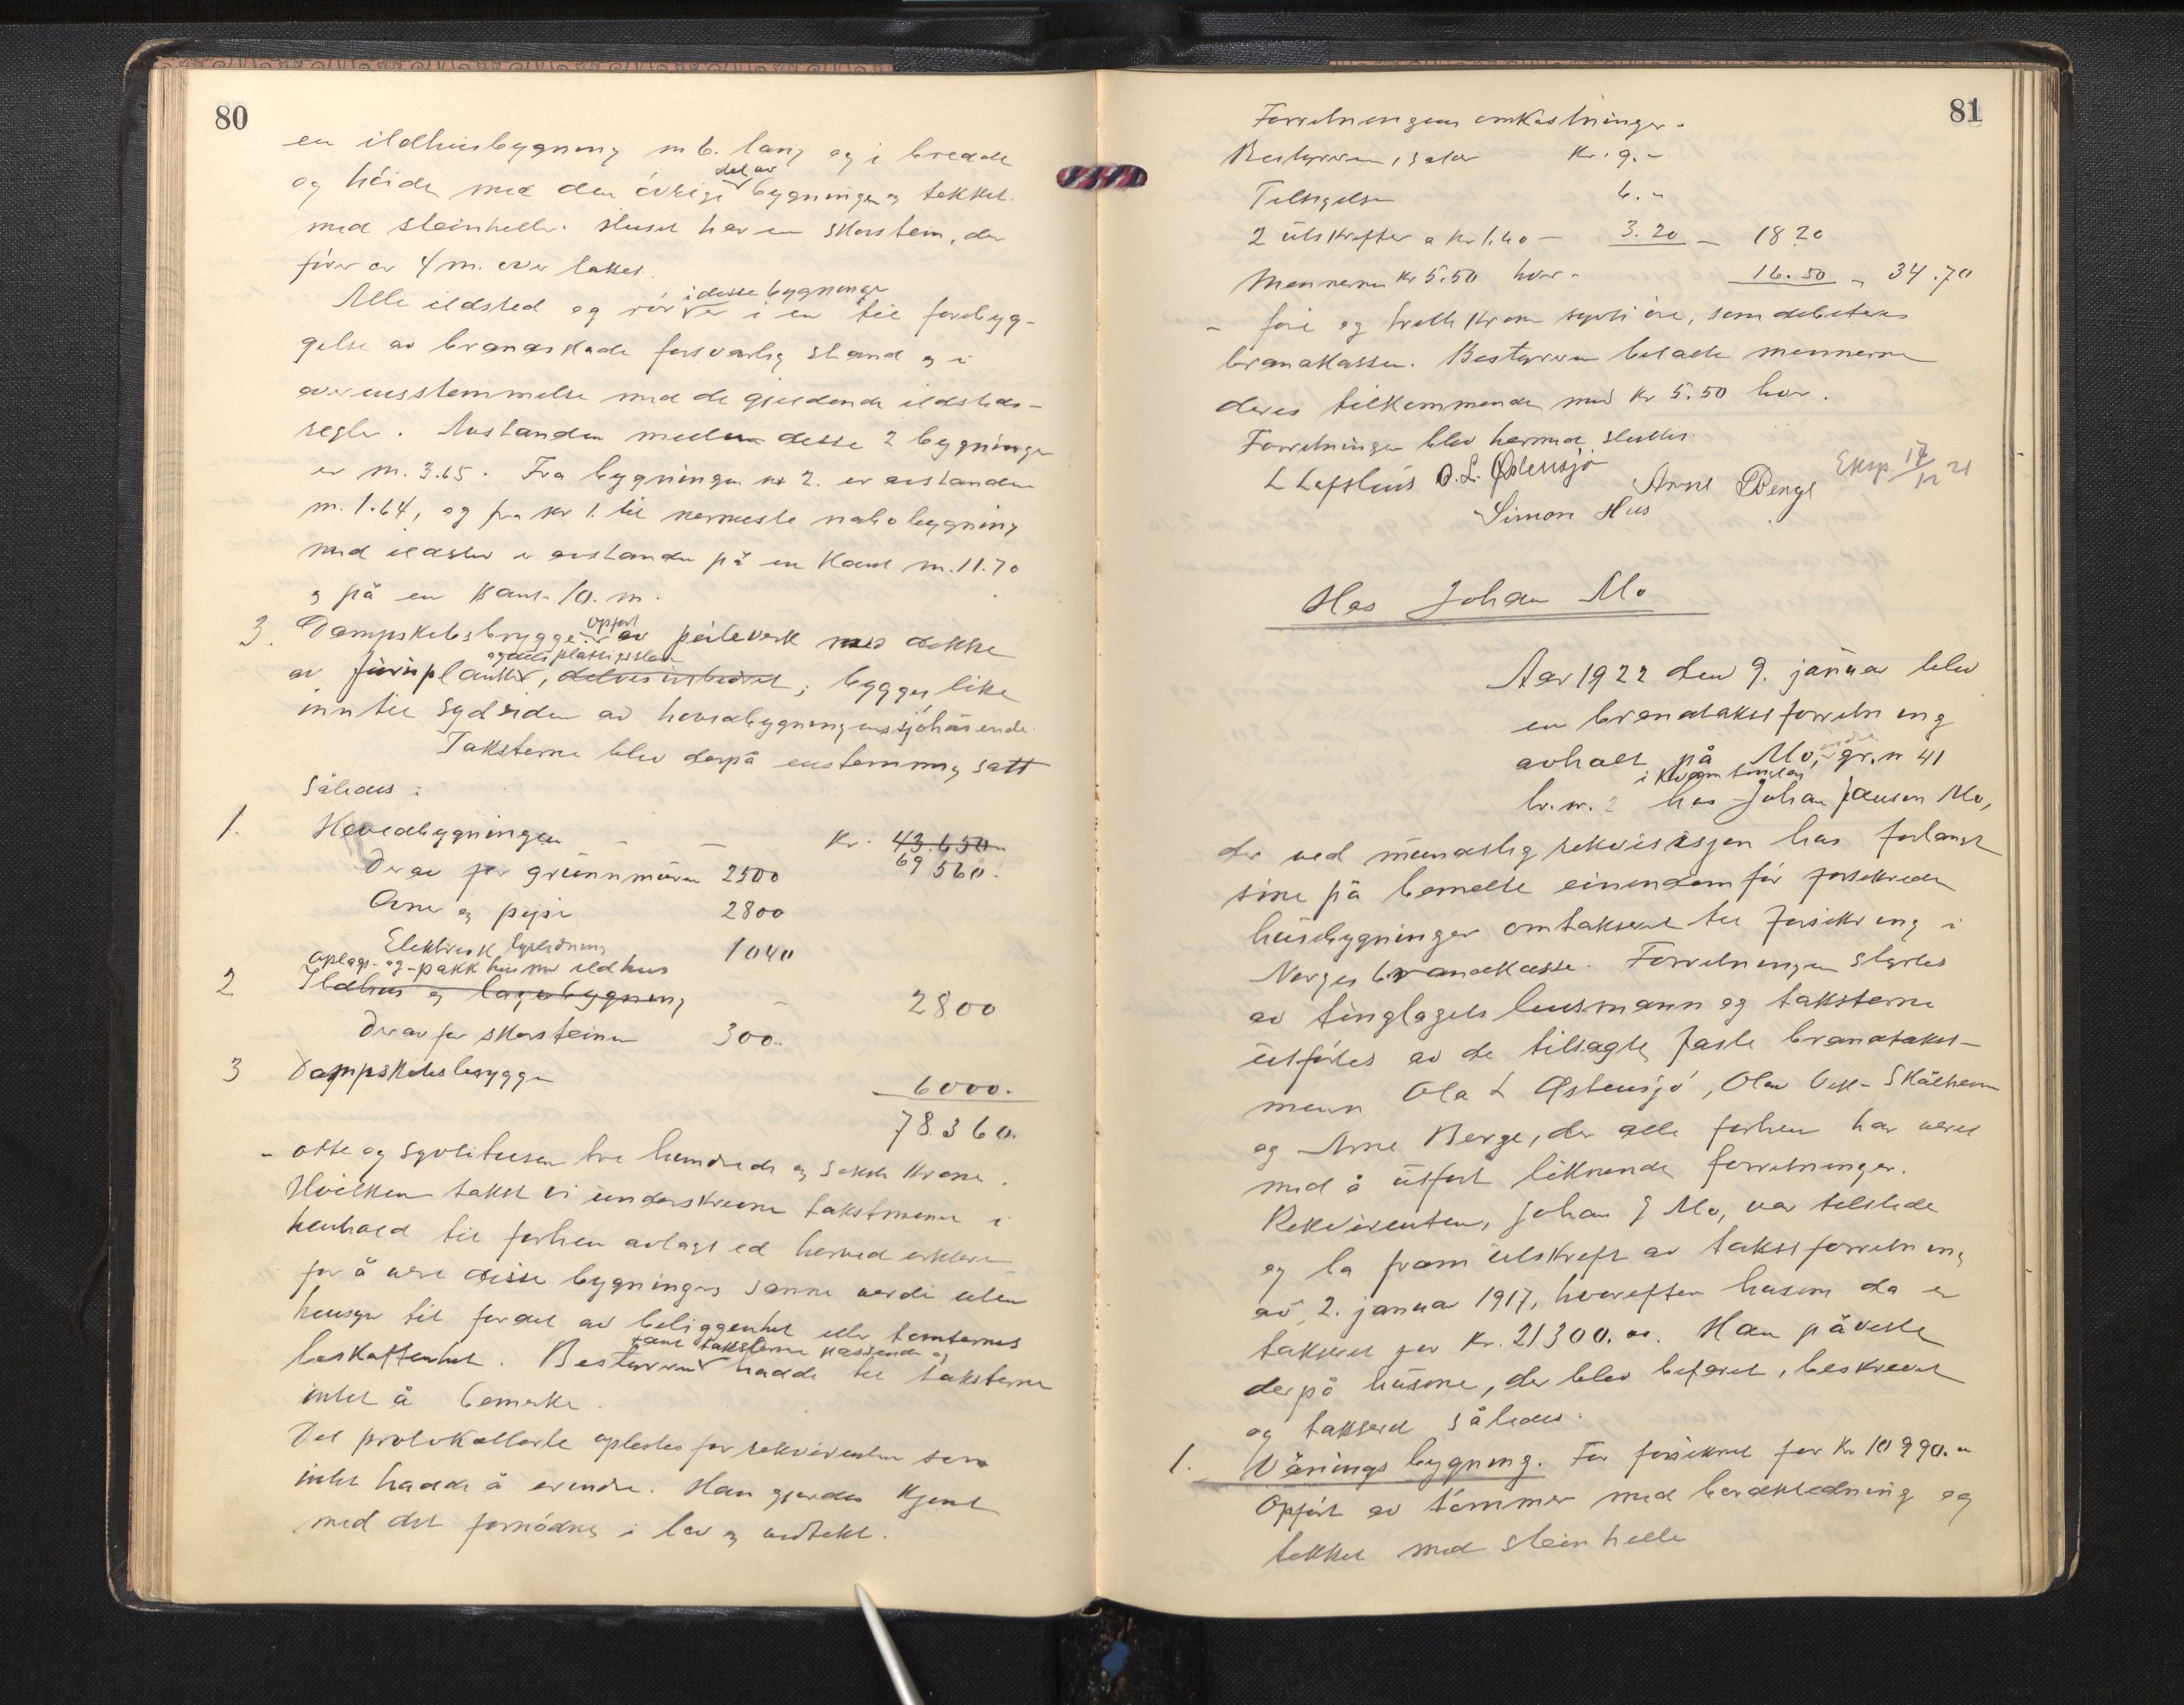 80
en ildhusbygning m 6. lang og i bredde
og høide med den øvrige del av bygningen og tekket
med steinheller. Huset har en skorstein, der
fører ca 4 m. over taket.
Alle ildsted og rør i desse bygninge er i en til forebyg-
gelse av brandskade forsvarlig stand og i
overensstemmelse med de gjeldende ildsteds-
regler. Avstanden mellem desse 2 bygninger
er m. 3.65. Fra bygningen nr 2. er avstanden
m. 1.64, og fra nr 1. til nermeste nabobygning
med ildsted er avstanden på en kant m. 11.70
og på en kant 10. m.
3. Dampskibsbrygge opført av peleverk med dekke
av furuplanker, og dels plattgeslen delves utbedret; bygget like
inn til sydsiden av hovedbygningens sjøhusende.
Taksterne blev derpå enstemmig satt
således:
1. Hovedbygningen - - Kr. 43.650.-
69 560.
Derav for grunnmuren 2500
Ovner og peise 2800
Elektrisk lysledning 1040
oplags- og pakkhus med ildhus
2 Ildhus og lagerbygning - 2800
Derav for skorsteinen 300.
3 Dampskibsbrygge 6000.
78.360.
- otte og syvtitusen tre hundrede og seksti kroner.
Hvilken takst vi underskrevne takstmenn i
henhold til forhen avlagt ed herved erklærer
for å være disse bygningers sanne verdi uten
hensyn til fordel av beliggenhet eller tomternes
beskaffenhet. Bestyreren fant taksterne passende og hadde til taksterne
intet å bemerke.
Det protokollerte oplestes for rekvirenten som
intet hadde å erindre. Han gjordes kjent
med det fornødne i lov og vedtekt.
81
Forretningens omkostninger.
Bestyreren, salær Kr. 9.-
Tilsigelse 6.-
2 utskrifter a kr 1.60 - 3.20 - 18 20
Mennerne kr 5.50 hver - 16.50 - 34.70
- fire og tretti kroner sytti øre, som debeteres
brandkassen. Bestyreren betalte mennerne
deres tilkommende med kr 5.50 hver.
Forretningen blev hermed sluttet.
L Lofthus O. L. Østensjø Arne Berge Eksp. 17/12 21
Simon Hus
Hos Johan Mo
Aar 1922 den 9. januar blev
en brandtakstforretning
avholt på Mo, nedre gr. n 41
i Kvam tinglag
br. nr. 2 hos Johan Jansen Mo,
der ved mundtlig rekvisisjon har forlangt
sine på bemelte eiendom før forsikrede
husbygninger omtaksert til forsikring i
Norges brandkasse. Forretningen styrtes
av tinglagets lensmann og taksterne
utførtes av de tilsagte, faste brandtakst-
menn Ola L Østensjø, Olav Skålheim
og Arne Berge, der alle forhen har veret
med å utført liknende forretninger.
Rekvirenten, Johan J Mo, var tilstede
og la fram utskrift av takstforretning
av 2. januar 1917, hvorefter husene da er
taksert for Kr. 21300.00. Han påviste
derpå husene, der blev beferet, beskrevet
og taksert således:
1. Våningsbygning. Før forsikret for Kr 10 990.-
Opført av tømmer med bordkledning og
tekket med steinheller